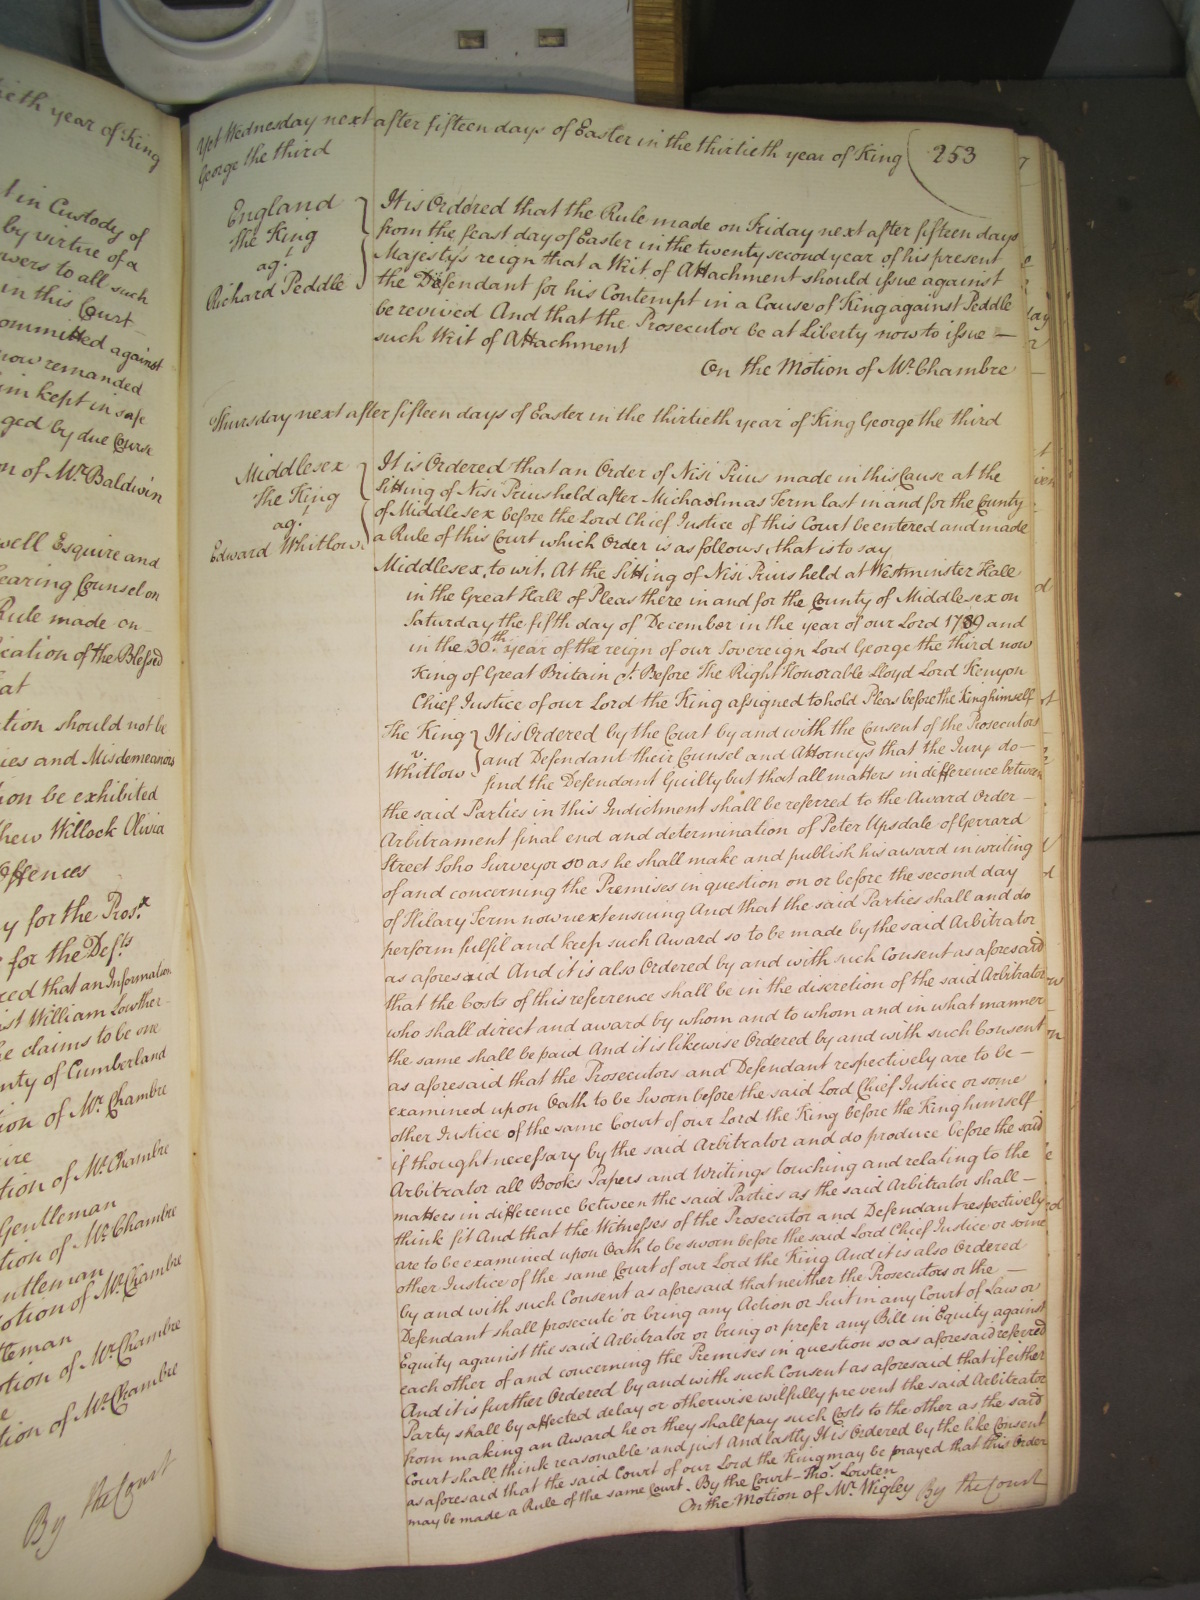 ieth year of King
l in Custody of
by virtue of a
wers to all such
in this Court
ommitted against
now remanded
im kept in safe
ged by due Course
on of Mr. Baldwin
well Esquire and
earing Counsel on
Rule made on
ication of the Blessed
at
tion should not be
ies and Misdemeanors
ion be exhibited
hew Willock Olivia
offences
y for the Prosr.
for the Defts
red that an Information
ist William Lowther
he claims to be one
nty of Cumberland
ion of Mr. Chambre
ire
tion of Mr. Chambre
Gentleman
tion of Mr. Chambre
ntleman
otion of Mr. Chambre
tleman
otion of Mr. Chambre
e
tion of Mr. Chambre
By the Court
Yet Wednesday next after fifteen days of Easter in the thirtieth year of King
George the third
253
England
The King
agt.
Richard Peddle
It is Ordered that the Rule made on Friday next after fifteen days
from the feast day of Easter in the twenty second year of his present
Majesty's reign that a Writ of Attachment should issue against
the Defendant for his Contempt in a Cause of King against Peddle
be revived And that the Prosecutor be at Liberty now to issue —
such Writ of Attachment
On the Motion of Mr. Chambre
Thursday next after fifteen days of Easter in the thirtieth year of King George the third
Middlesex
The King
agt.
Edward Whitlow
It is Ordered that an Order of Nisi Prius made in this Cause at the
Sitting of Nisi Prius held after Michaelmas Term last in and for the County
of Middlesex before the Lord Chief Justice of this Court be entered and made
a Rule of this Court which Order is as follows, that is to say
Middlesex, to wit. At the Sitting of Nisi Prius held at Westminster Hall
in the Great Hall of Pleas there in and for the County of Middlesex on
Saturday the fifth day of December in the year of our Lord 1789 and
in the 30th. year of the reign of our Sovereign Lord George the third now
King of Great Britain &c. Before The Right Honorable Lloyd Lord Kenyon
Chief Justice of our Lord the King assigned to hold Pleas before the King himself
The King
v
Whitlow
It is Ordered by the Court by and with the Consent of the Prosecutors
and Defendant their Counsel and Attorneys that the Jury do —
find the Defendant Guilty but that all matters in difference between
the said Parties in this Indictment shall be referred to the Award Order —
Arbitrament final end and determination of Peter Upsdale of Gerrard
Street Soho Surveyor so as he shall make and publish his award in writing
of and concerning the Premises in question on or before the second day
of Hilary Term now next ensuing And that the said Parties shall and do
perform fulfil and keep such Award so to be made by the said Arbitrator
as aforesaid And it is also Ordered by and with such Consent as aforesaid
that the Costs of this reference shall be in the discretion of the said Arbitrator
who shall direct and award by whom and to whom and in what manner
the same shall be paid And it is likewise Ordered by and with such Consent
as aforesaid that the Prosecutors and Defendant respectively are to be —
examined upon Oath to be Sworn before the said Lord Chief Justice or some
other Justice of the same Court of our Lord the King before the King himself
if thought necessary by the said Arbitrator and do produce before the said
Arbitrator all Books Papers and Writings touching and relating to the
matters in difference between the said Parties as the said Arbitrator shall —
think fit And that the Witnesses of the Prosecutor and Defendant respectively
are to be examined upon Oath to be sworn before the said Lord Chief Justice or some
other Justice of the same Court of our Lord the King And it is also Ordered
by and with such Consent as aforesaid that neither the Prosecutors or the —
Defendant shall prosecute or bring any Action or Suit in any Court of Law or
Equity against the said Arbitrator or bring or prefer any Bill in Equity against
each other of and concerning the Premises in question so as aforesaid referred
And it is further Ordered by and with such Consent as aforesaid that if either
Party shall by affected delay or otherwise wilfully prevent the said Arbitrator
from making an Award he or they shall pay such Costs to the other as the said
Court shall think reasonable and just And lastly It is Ordered by the like Consent
as aforesaid that the said Court of our Lord the King may be prayed that this Order
may be made a Rule of the same Court. By the Court Thos. Lowten
On the Motion of Mr. Wigley By the Court